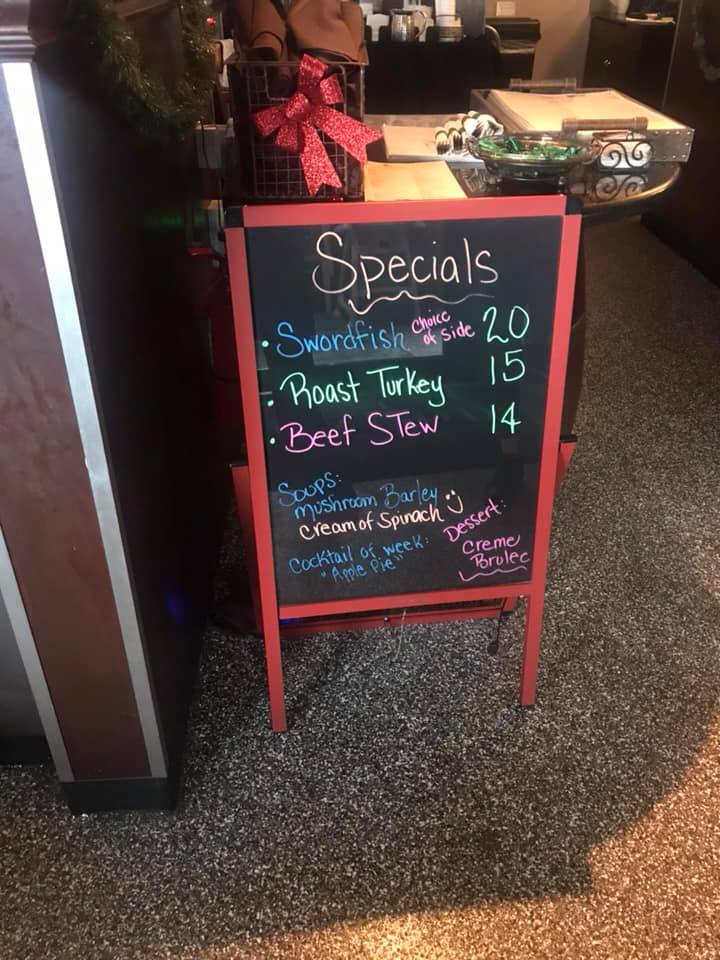 Specials
• Swordfish Choice of side 20
• Roast Turkey 15
• Beef Stew 14
Soups:
mushroom Barley
Cream of Spinach
Cocktail of week:
"Apple Pie"
Dessert:
Creme
Brulee